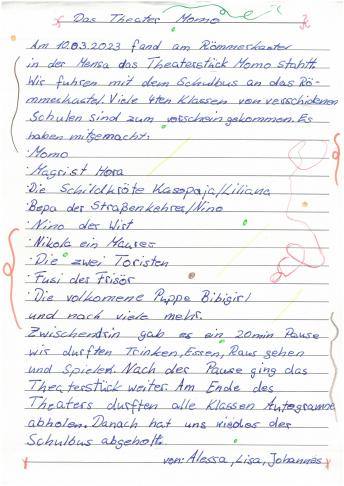 Das Theater Momo
Am 10.03.2023 fand am Römmerkaster
in der Mensa das Theaterstück Momo stahtt.
Wir fuhren mit dem Schulbus an das Rö-
mmerkastel. Viele 4ten Klassen von verschidenen
Schulen sind zum vorschein gekommen. Es
haben mitgemacht:
·Momo
·Magrist Hora
·Die Schildkröte Kasopaja/Liliana
·Bepa der Straßenkehrer/Nino
·Nino der Wirt
·Nikola ein Maurer
·Die zwei Toristen
·Fusi der Frisör
·Die volkomene Puppe Bibigirl
und noch viele mehr.
Zwischendrin gab es ein 20min Pause
wir durften Trinken, Essen, Raus gehen
und Spielen. Nach der Pause ging das
Theaterstück weiter. Am Ende des
Theaters durften alle Klassen Autogramme
abholen. Danach hat uns wieder der
Schulbus abgeholt.
von: Alessa, Lisa, Johannes